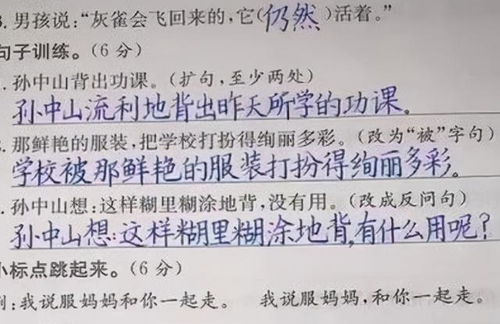 .男孩说:“灰雀会飞回来的,它(仍然)活着。”
句子训练。(6分)
.孙中山背出功课。(扩句,至少两处)
孙中山流利地背出昨天所学的功课。
.那鲜艳的服装,把学校打扮得绚丽多彩。(改为“被”字句)
学校被那鲜艳的服装打扮得绚丽多彩。
.孙中山想:这样糊里糊涂地背,没有用。(改成反问句)
孙中山想:这样糊里糊涂地背,有什么用呢?
小标点跳起来。(6分)
例:我说服妈妈和你一起走。 我说服妈妈,和你一起走。